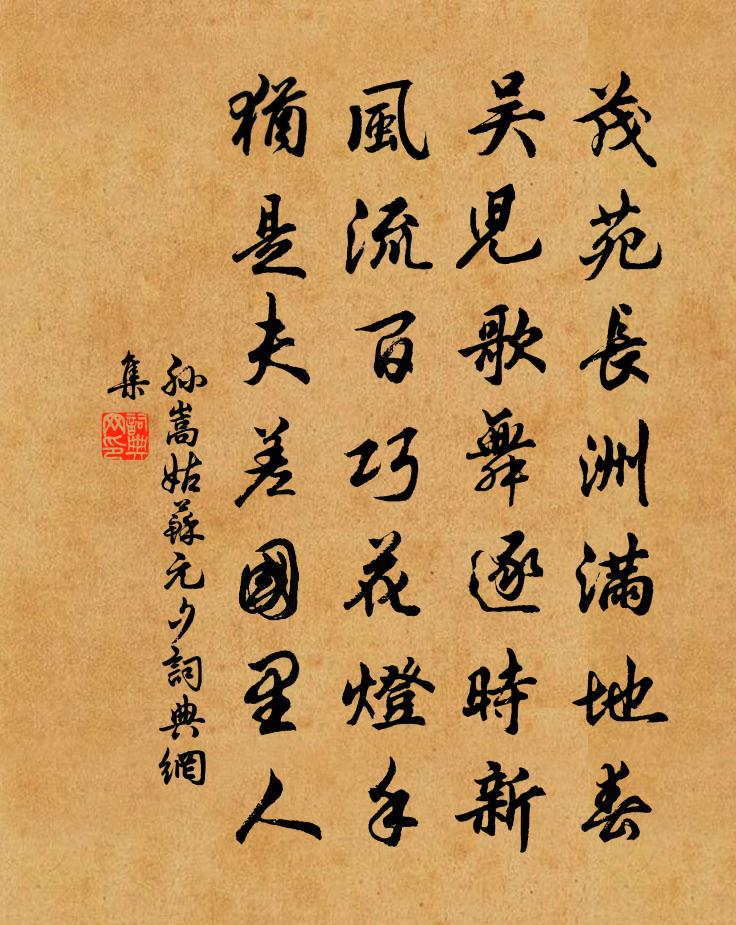 茂苑長洲滿地春
吴兒歌舞逐時新
風流百巧花燈手
猶是夫差國里人
孫嵩姑蘇元夕詞典網
集
詞典
网印